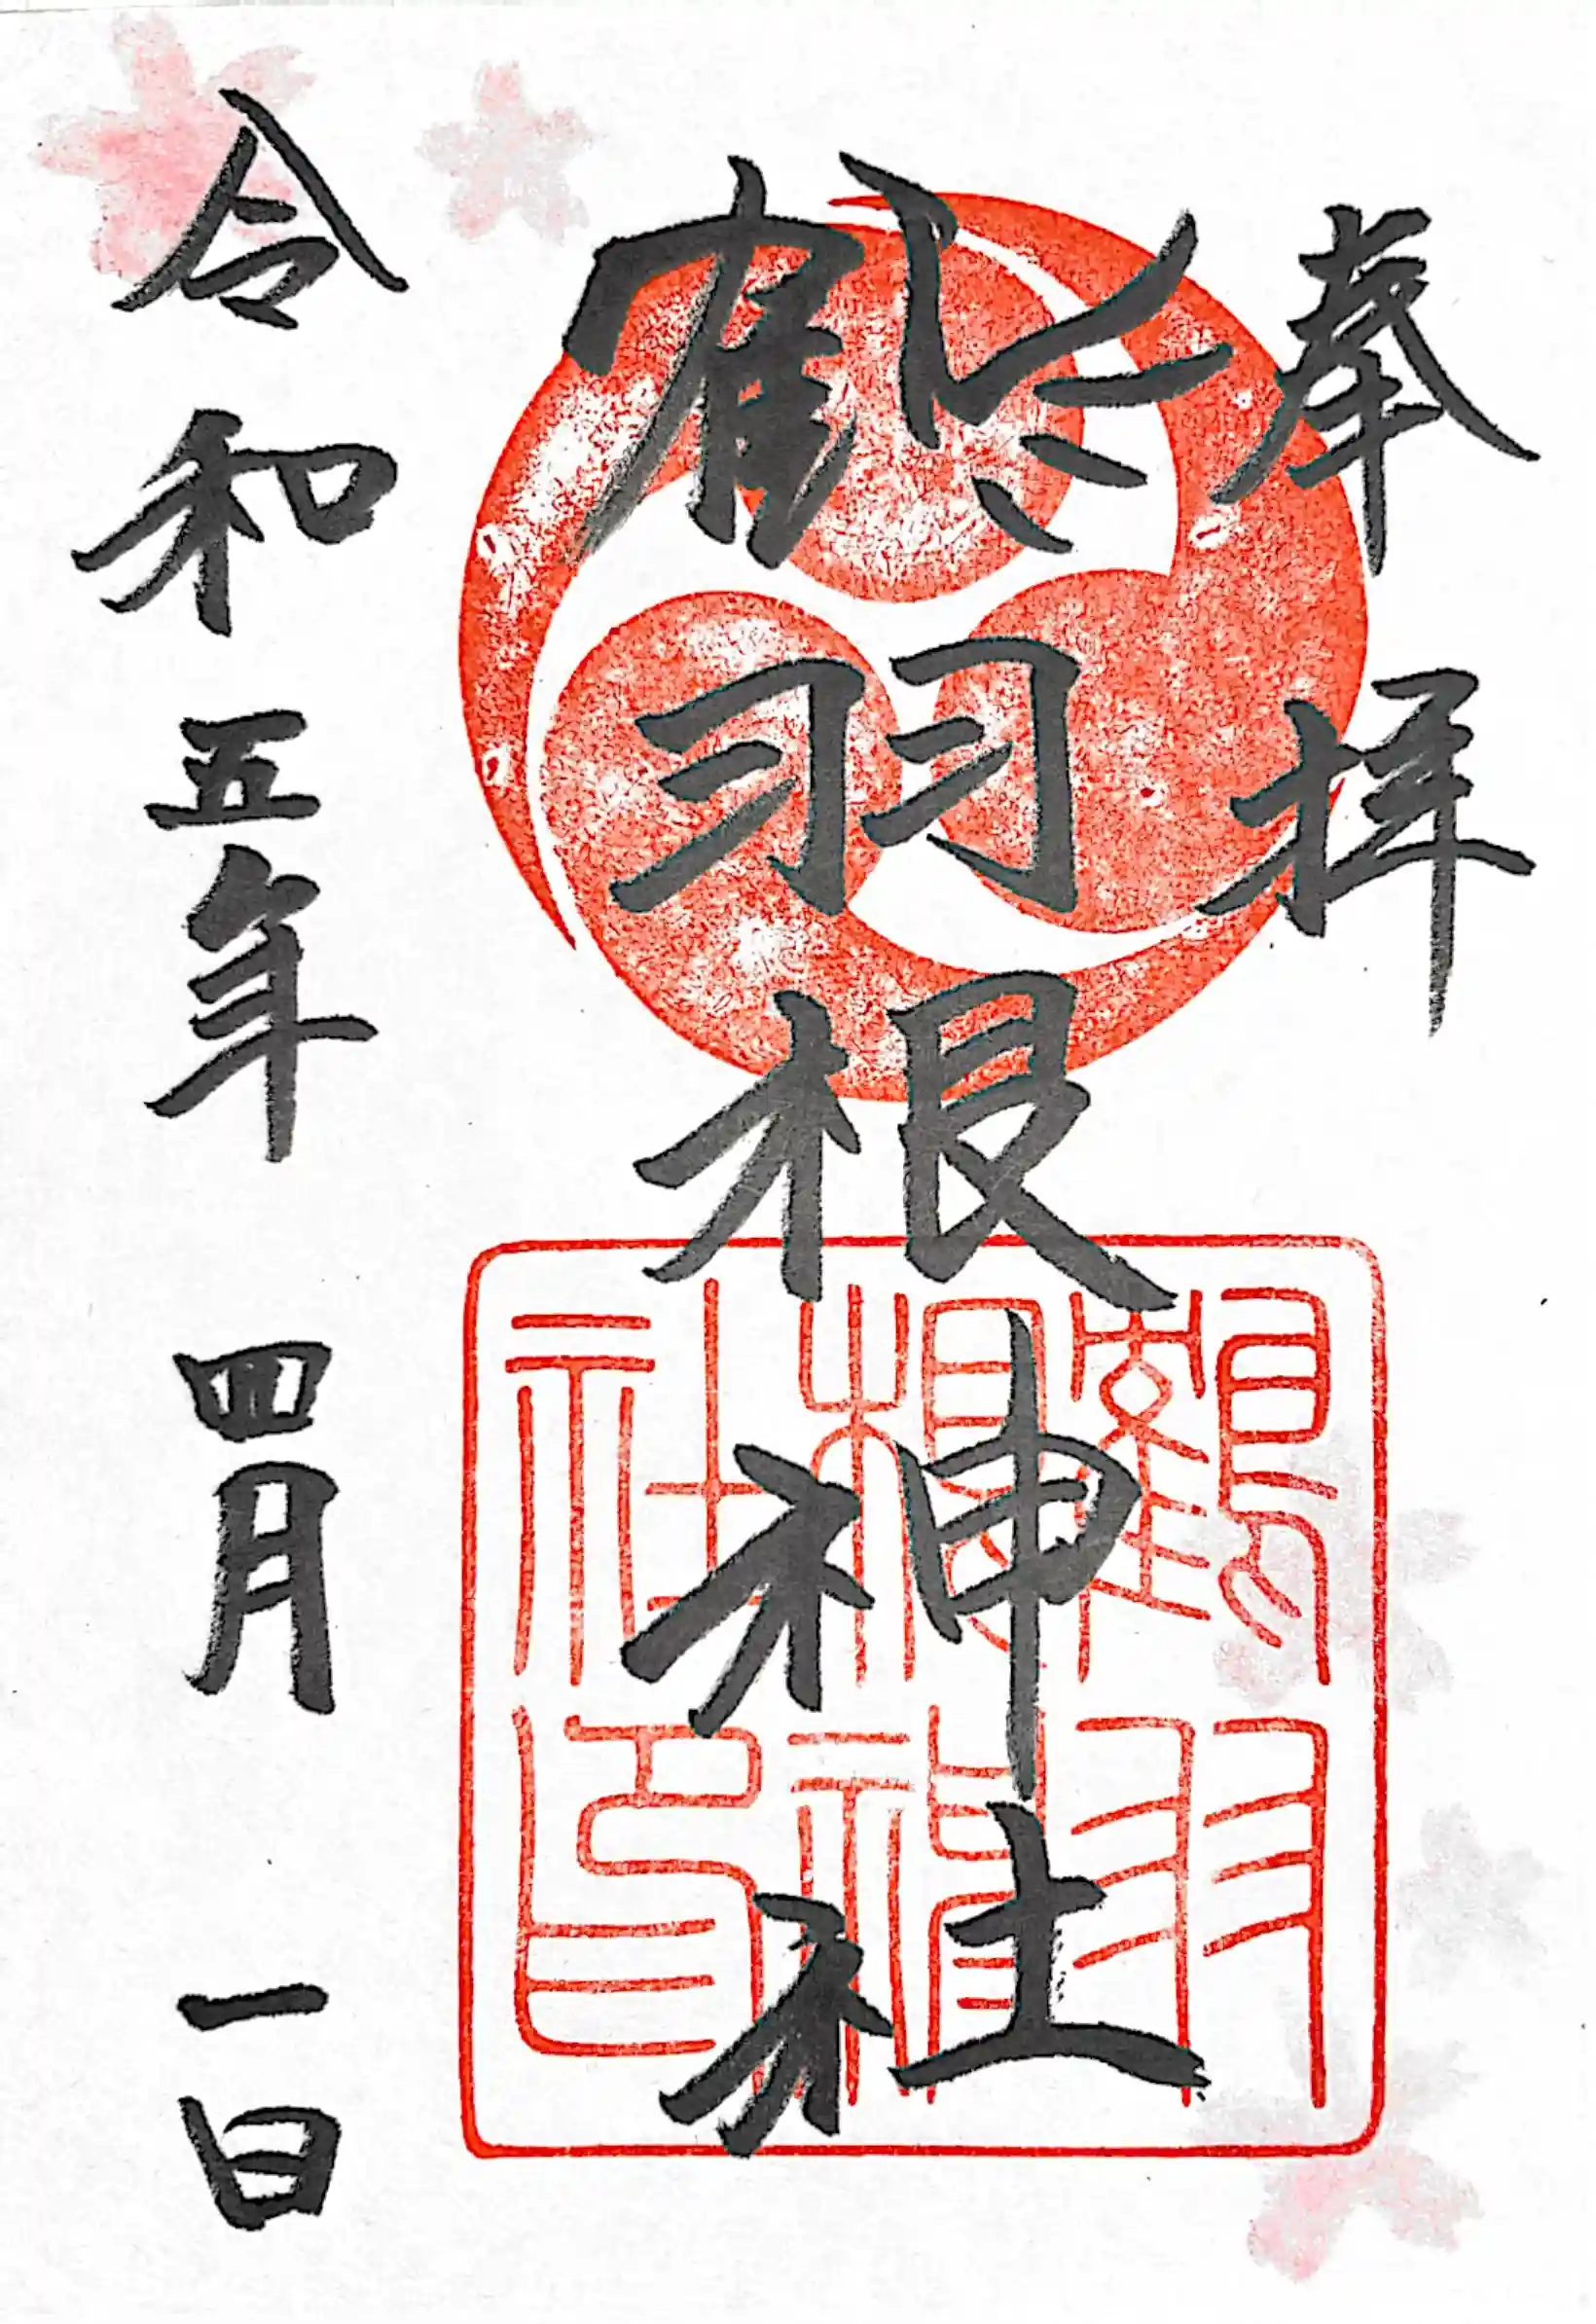 奉拝
鶴羽根神社
令和五年四月一日
鶴羽根神社印